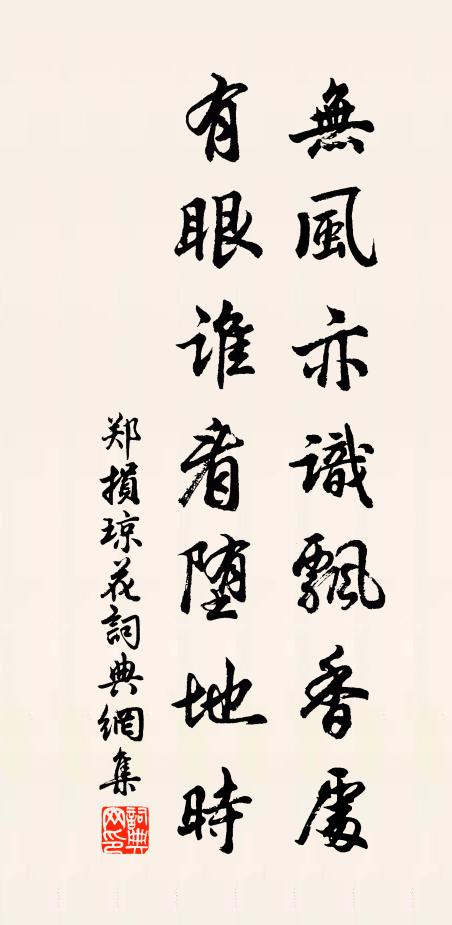 無風亦識飄香處
有眼谁看堕地時
郑損琼花詞典網集
詞典网印